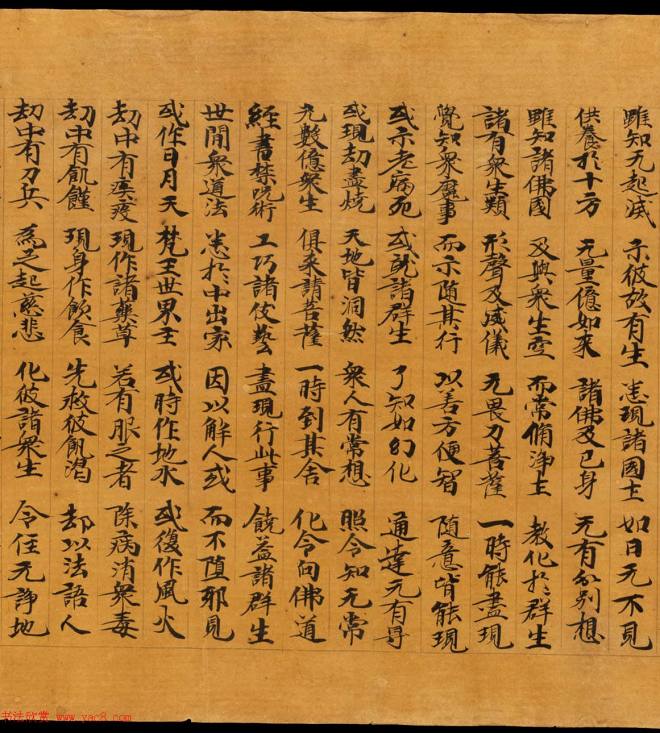 雖知无起滅 示彼故有生 悉現諸國土 如日无不見
供養於十方 无量億如来 諸佛及己身 无有分別想
雖知諸佛國 及與衆生空 而常脩淨土 教化於群生
諸有衆生類 形聲及威儀 无畏力菩薩 一時能盡現
覺知衆魔事 而示随其行 以善方便智 随意皆能現
或示老病死 成就諸群生 了知如幻化 通達无有㝵
或現劫盡燒 天地皆洞然 衆人有常想 照令知无常
无數億衆生 俱来請菩薩 一時到其舍 化令向佛道
經書禁呪術 工巧諸伎藝 盡現行此事 饒益諸群生
世間衆道法 悉於中出家 因以解人或 而不墮邪見
或作日月天 梵王世界主 或時作地水 或復作風火
劫中有疾疫 現作諸藥草 若有服之者 除病消衆毒
劫中有飢饉 現身作飲食 先救彼飢渴 却以法語人
劫中有刀兵 為之起慈悲 化彼諸衆生 令住无諍地
书法欣赏 www.yac8.com